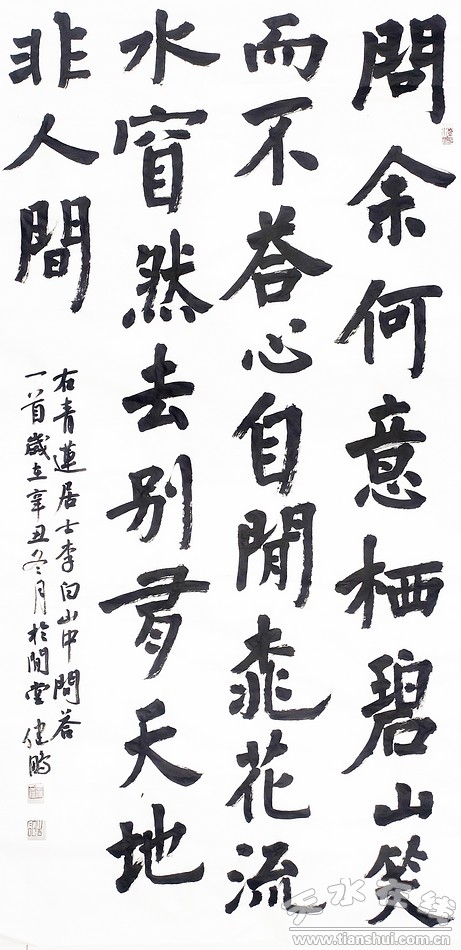 問余何意栖碧山笑
而不荅心自閒桃花流
水窅然去别有天地
非人間
右青蓮居士李白山中問荅
一首歲在辛丑冬月於閒堂健鵬
天水在线
www.tianshui.com.cn